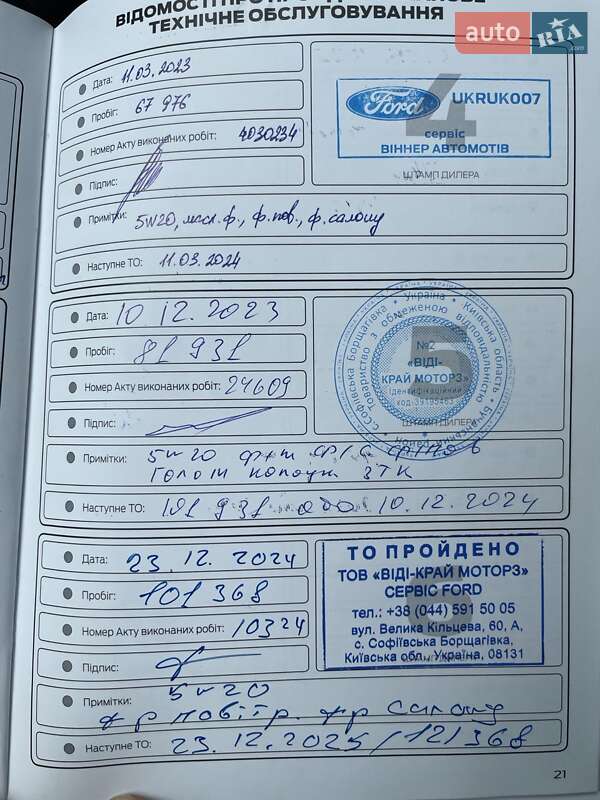 ТЕХНІЧНЕ ОБСЛУГОВУВАННЯ
auto RIA.com
Дата: 11.03.2023
Пробіг: 67 976
Номер Акту виконаних робіт: 4030234
Підпис:
Примітки: 5W20, масл.ф., ф.пов., ф.салону
Наступне ТО: 11.03.2024
Ford UKRUK007
сервіс
ВІННЕР АВТОМОТІВ
ШТАМП ДИЛЕРА
4
Дата: 10 12.2023
Пробіг: 81 931
Номер Акту виконаних робіт: 24609
Підпис:
Примітки: 5w20
ЗТК
Наступне ТО: 101 931 або 10.12.2024
Україна * Київська область *
с.Софіївська Борщагівка
Товариство з обмеженою відповідальністю
№2
«ВІДІ-
КРАЙ МОТОРЗ»
Ідентифікаційний
код
ШТАМП ДИЛЕРА
5
Дата: 23.12.2024
Пробіг: 101 368
Номер Акту виконаних робіт: 10324
Підпис:
Примітки: 5w20
повітр. салону
Наступне ТО: 23.12.2025/121368
ТО ПРОЙДЕНО
ТОВ «ВІДІ-КРАЙ МОТОРЗ»
СЕРВІС FORD
тел.: +38 (044) 591 50 05
вул. Велика Кільцева, 60, А,
с. Софіївська Борщагівка,
Київська обл., Україна, 08131
21